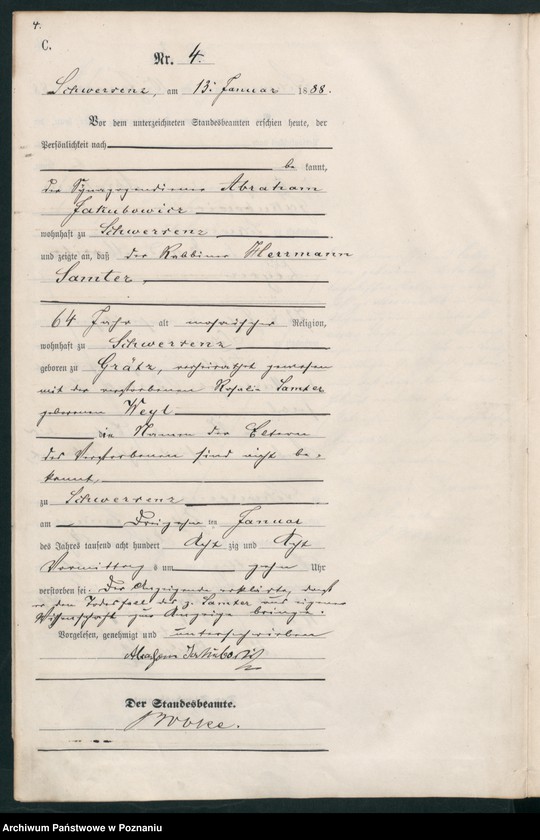 4.
C.
Nr. 4.
Schwersenz, am 13. Januar 1888.
Vor dem unterzeichneten Standesbeamten erschien heute, der
Persönlichkeit nach
be kannt,
der Synagogendiener Abraham
Jakubowicz
wohnhaft zu Schwersenz
und zeigte an, daß der Rabbiner Herrmann
Samter,
64 Jahr alt mosaischer Religion,
wohnhaft zu Schwersenz
geboren zu Grätz, verheirathet gewesen
mit der verstorbenen Rosalie Samter
geborenen Weyl
die Namen der Eltern
des Verstorbenen sind nicht be-
kannt
zu Schwersenz
am Dreizehnten Januar
des Jahres tausend acht hundert Acht zig und Acht
Vormittag s um zehn Uhr
verstorben sei. Der Anzeigende erklärte, daß
er den Todesfall des p. Samter aus eigener
Wissenschaft zur Anzeige bringe.
Vorgelesen, genehmigt und unterschrieben
Abraham Jakubowicz
Der Standesbeamte.
Archiwum Państwowe w Poznaniu